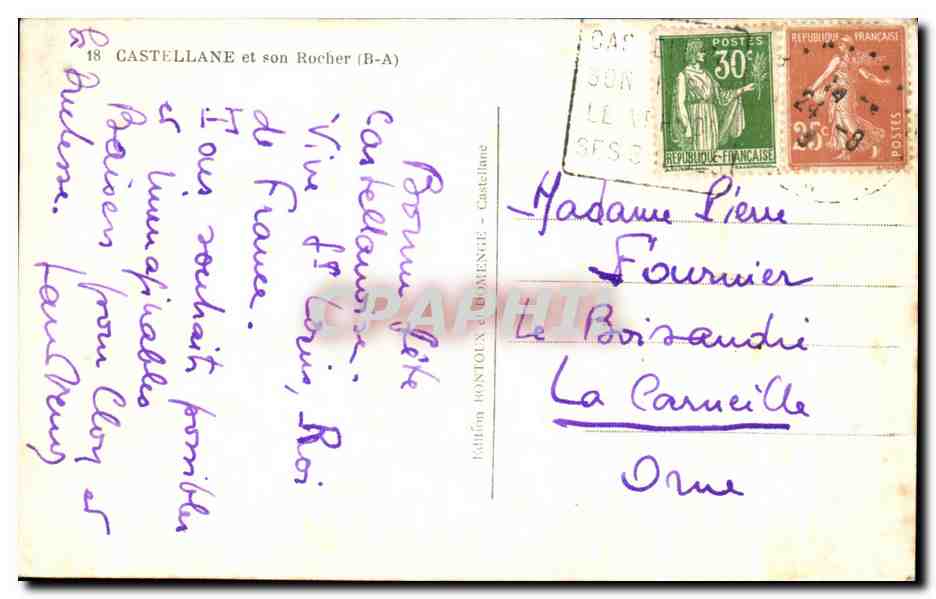 18 CASTELLANE et son Rocher (B-A)
Bonne fête
Castellanaise.
Vive St Louis, Roi
de France.
Tous souhaits possibles
et inimaginables
Baisers pour Clory et
la Duchesse.
Edition BONTOUX et DOMENGE - Castellane
CAS
SON
LE
SES
POSTES
30c
REPUBLIQUE FRANÇAISE
REPUBLIQUE FRANÇAISE
25c
POSTES
Madame Pierre
Fournier
Le Boisandré
La Carneille
Orne
CPAPHIL